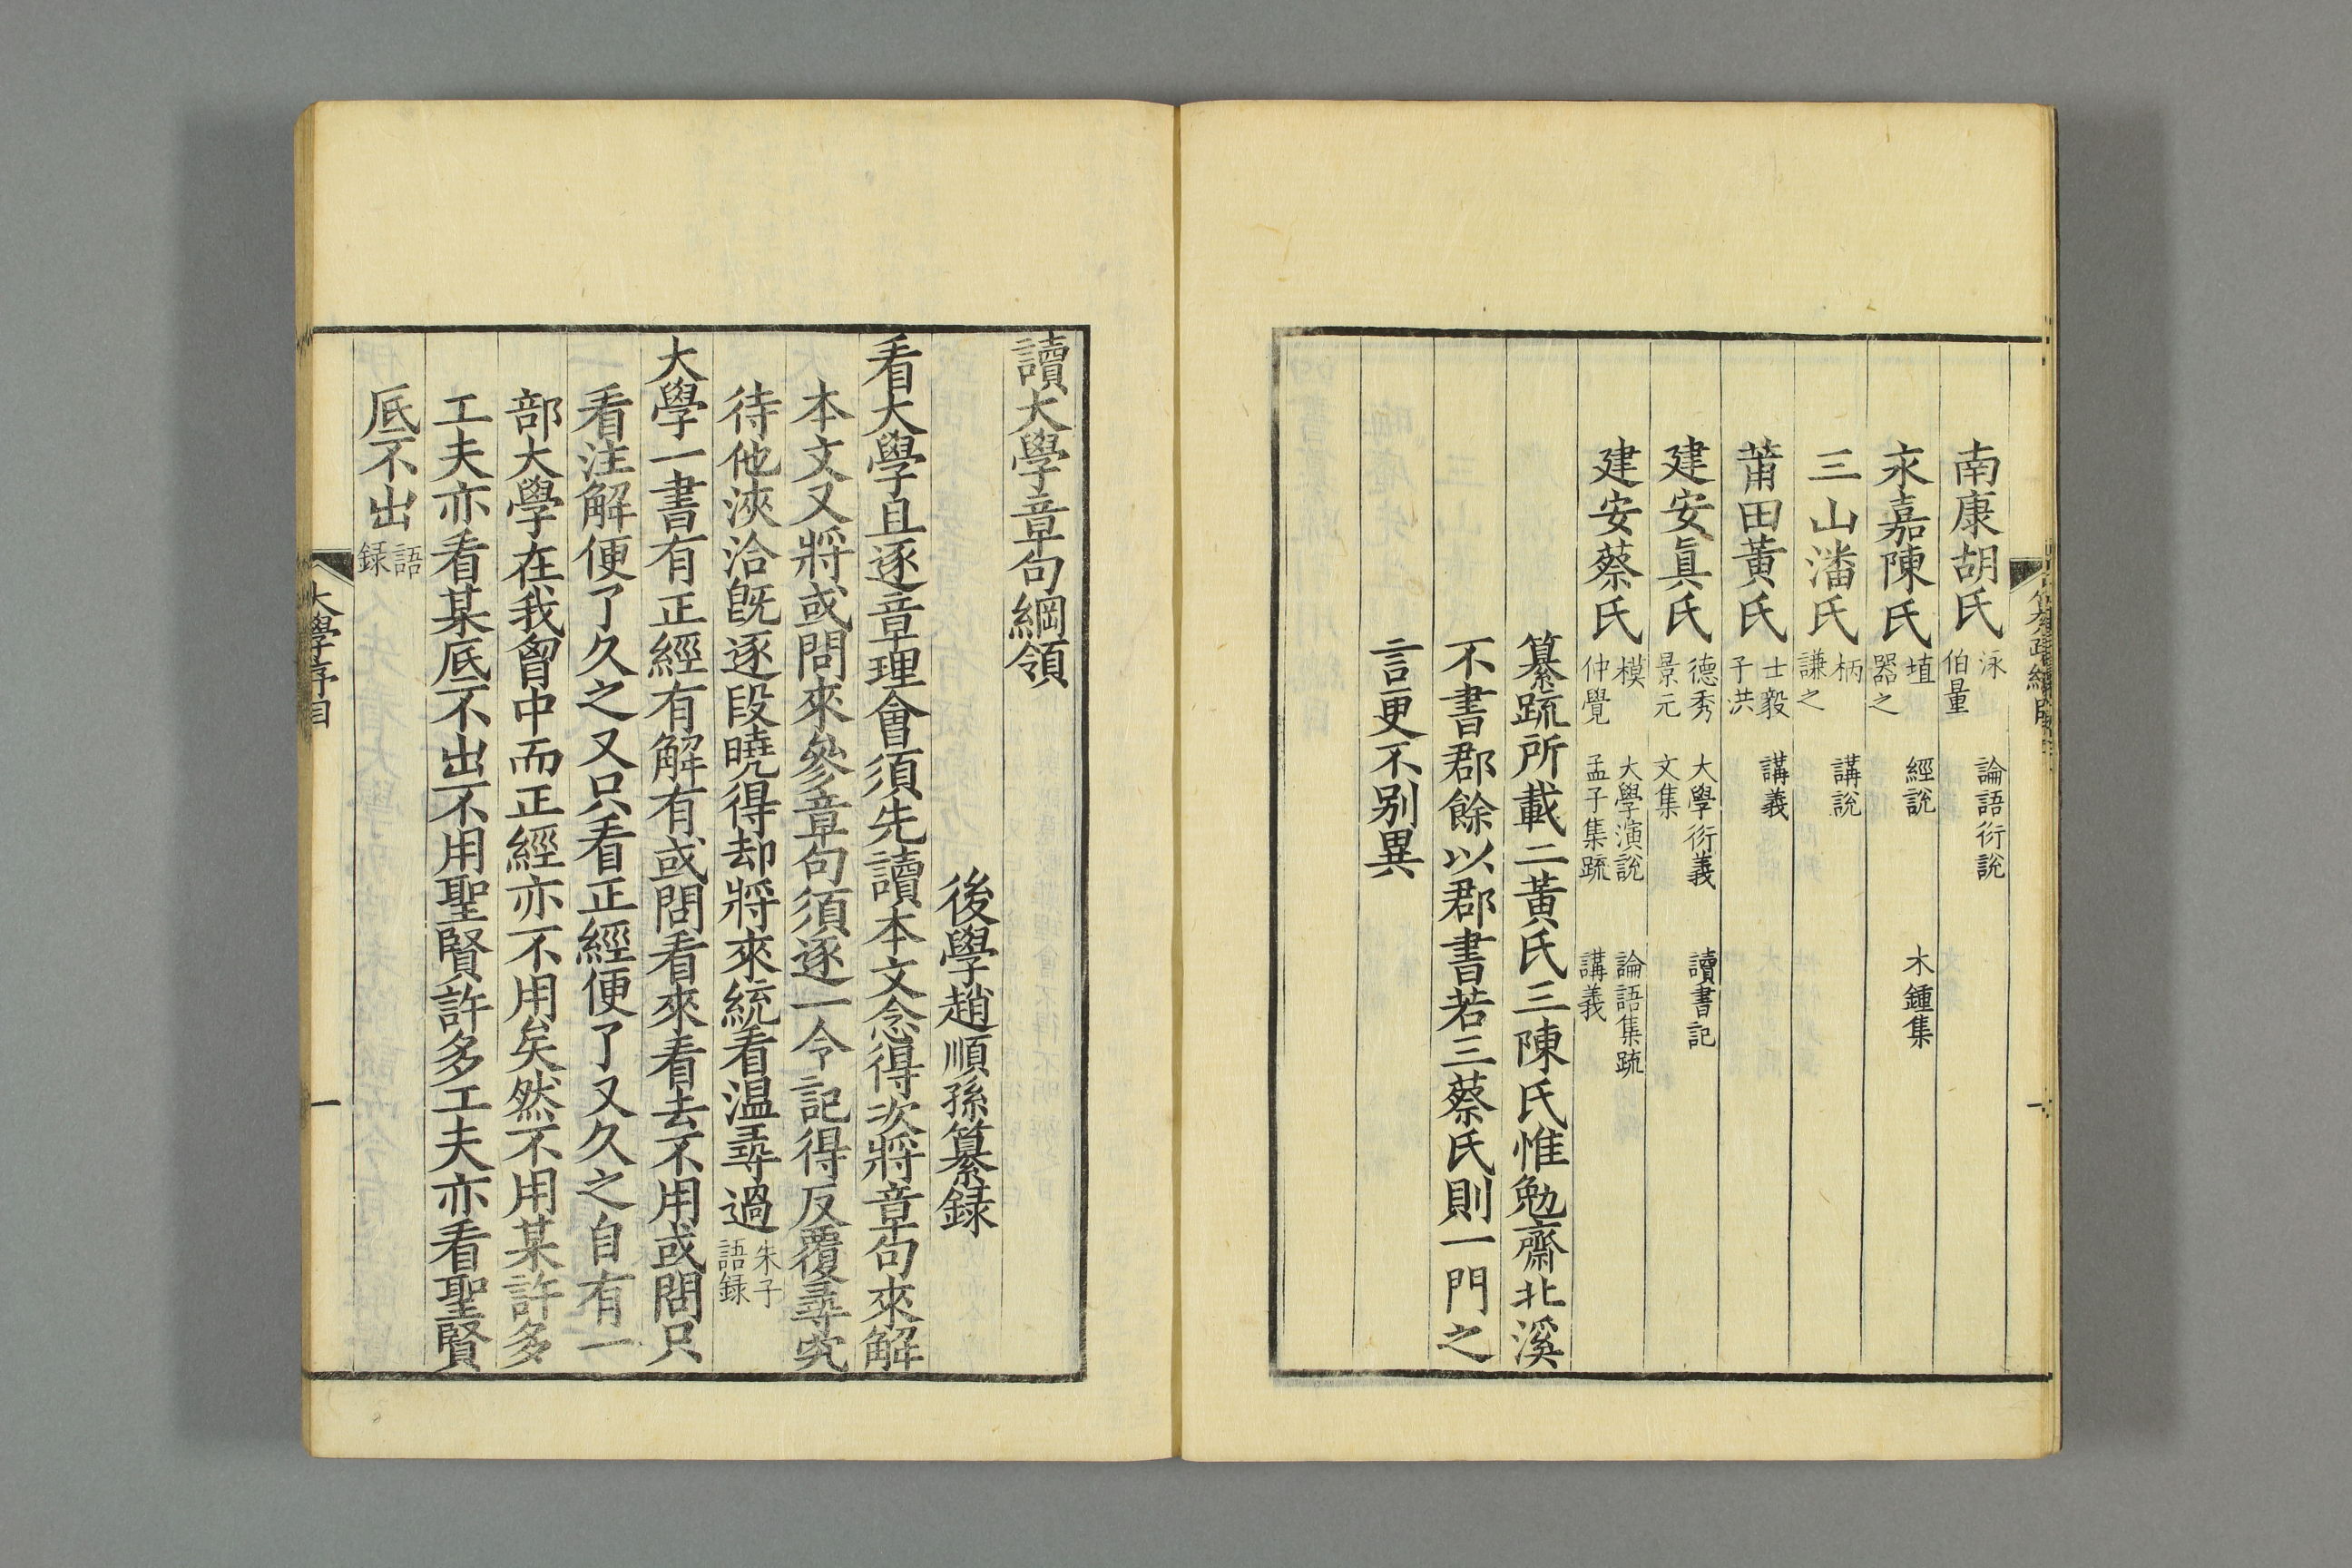 南康胡氏 泳 伯量 論語衍說
永嘉陳氏 埴 器之 經說 木鍾集
三山潘氏 柄 謙之 講說
莆田黃氏 士毅 子洪 講義
建安眞氏 德秀 景元 大學衍義 文集 讀書記
建安蔡氏 模 仲覺 大學演說 孟子集疏 論語集疏 講義
纂疏所載二黃氏三陳氏惟勉齋北溪
不書郡餘以郡書若三蔡氏則一門之
言更不别異
讀大學章句綱領
後學趙順孫纂録
看大學且逐章理會須先讀本文念得次將章句來解
本文又將或問來參章句須逐一令記得反覆尋究
待他浹洽旣逐段曉得却將來統看溫尋過 朱子語録
大學一書有正經有解有或問看來看去不用或問只
看注解便了久之又只看正經便了又久之自有一
部大學在我胷中而正經亦不用矣然不用某許多
工夫亦看某底不出不用聖賢許多工夫亦看聖賢
底不出 語録
大學序目 一